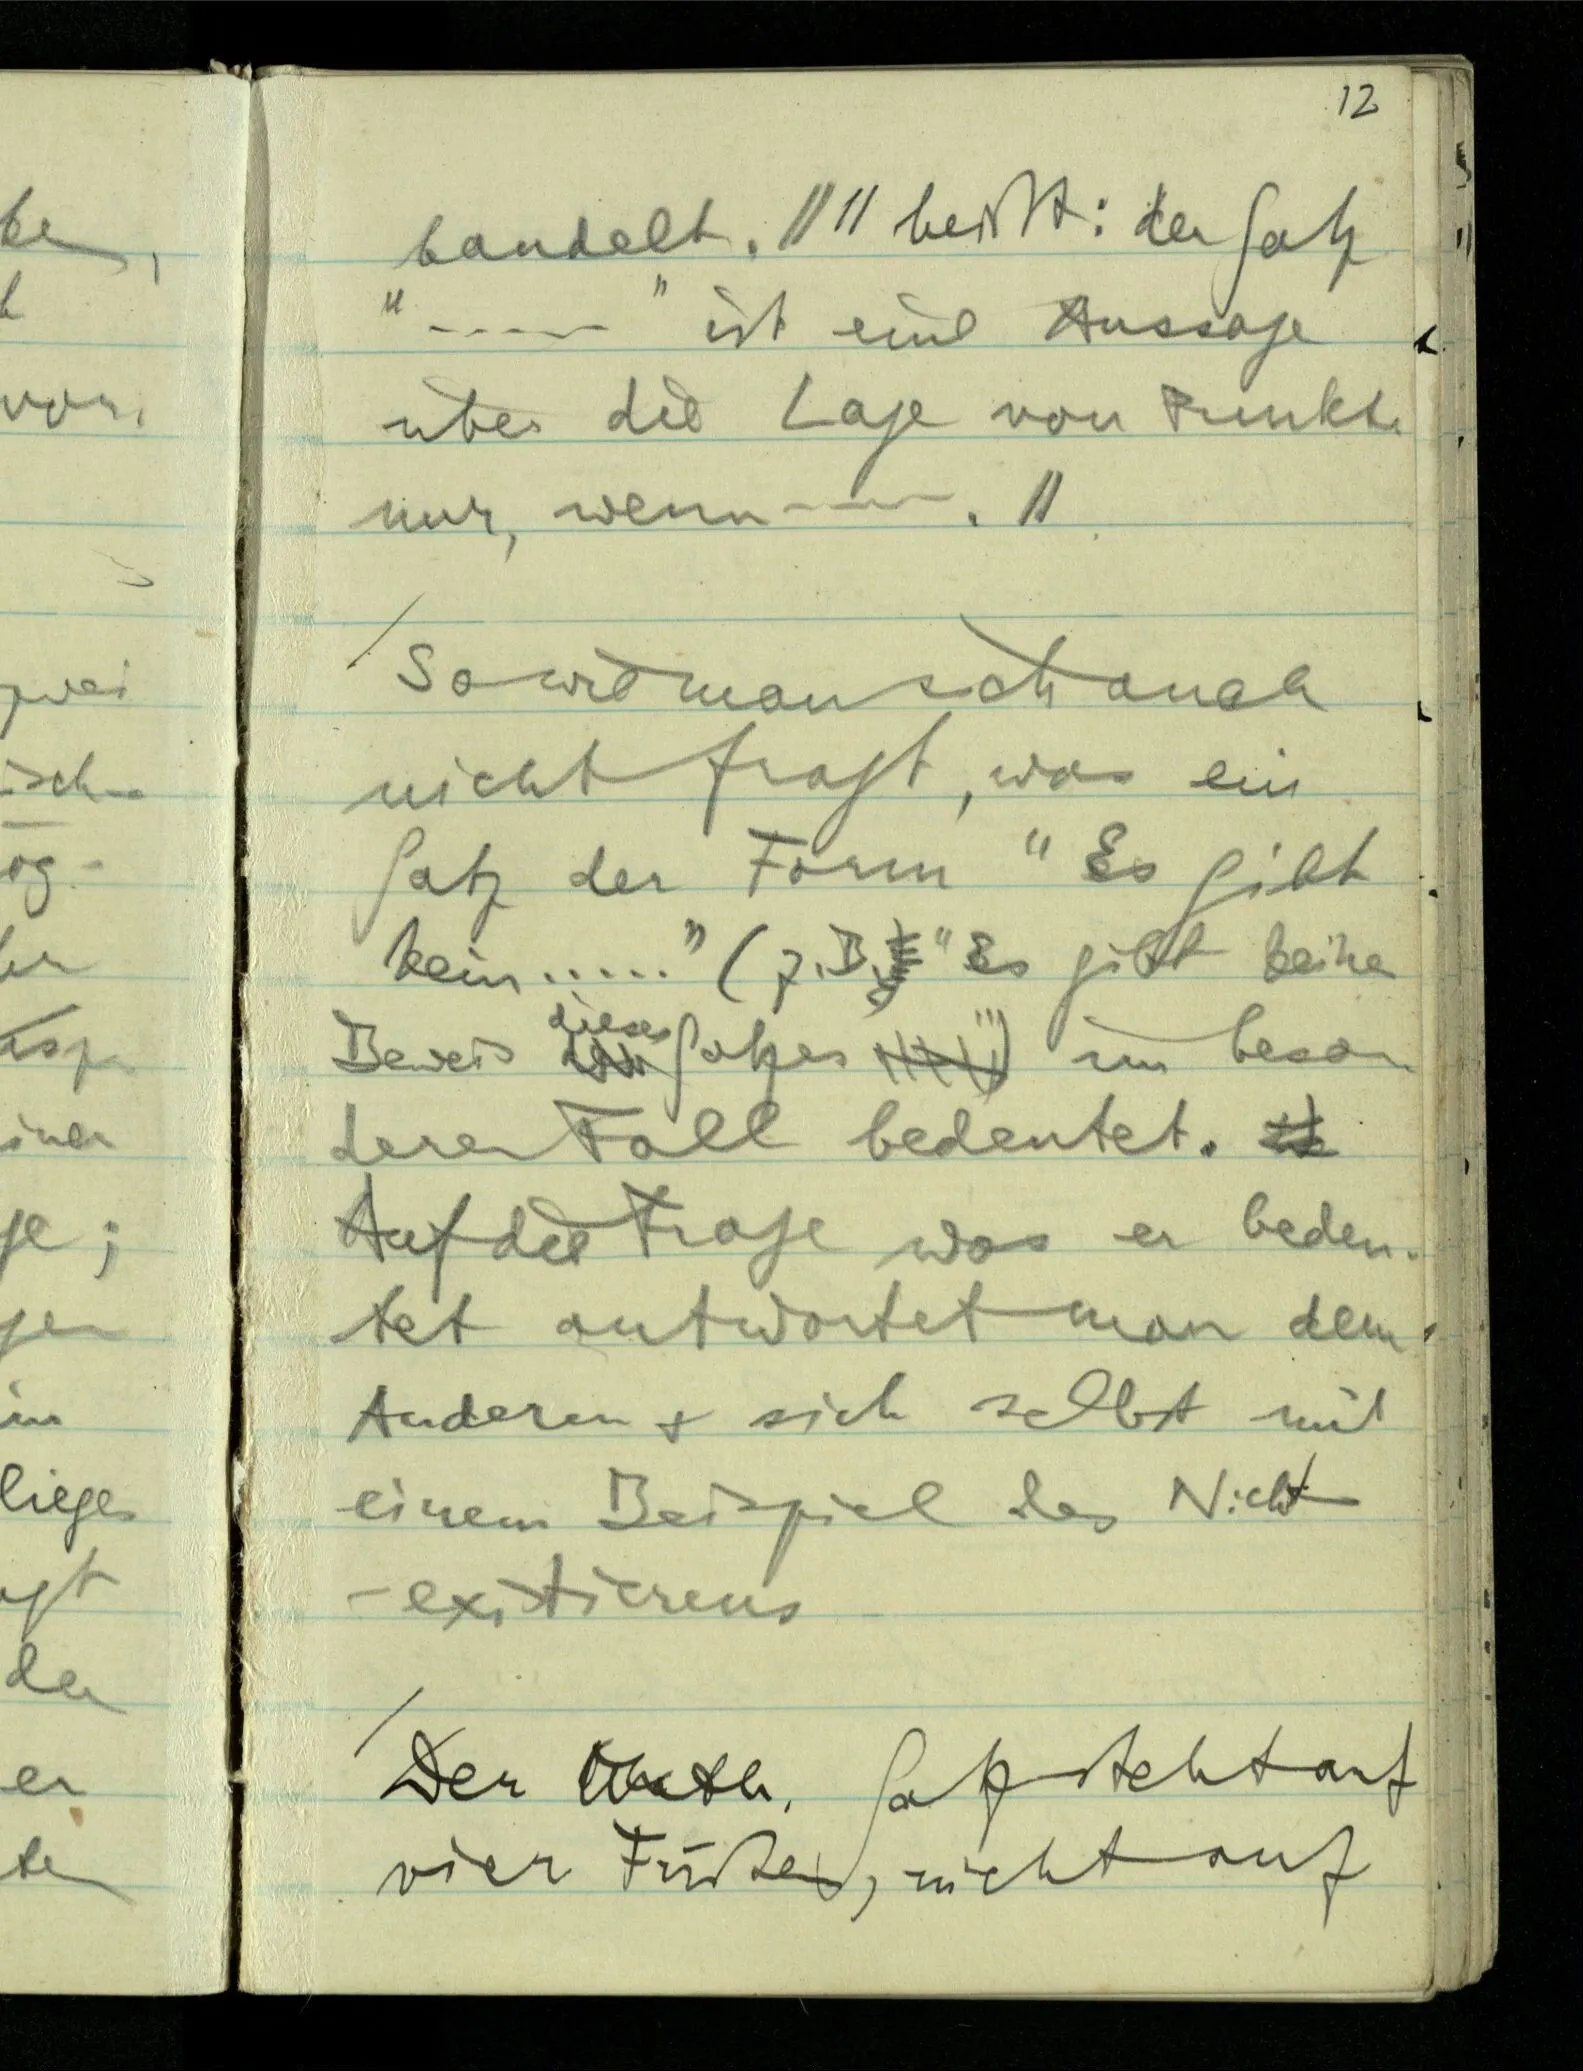 12
handelt. // " heißt: der Satz
"----" ist eine Aussage
über die Lage von Punkten
nur, wenn ----. //
/ So wie man sich auch
nicht fragt, was ein
Satz der Form "Es gibt
kein....." (z.B. "Es gibt keinen
Beweis dieses Satzes") im beson
deren Fall bedeutet.
Auf die Frage was er bedeu-
tet antwortet man dem
Anderen & sich selbst mit
einem Beispiel des Nicht
-existierens
/ Der Math. Satz steht auf
vier Füßen, nicht auf
zwei
isch
ög-
iner
ge;
gen
in
lieges
der
er